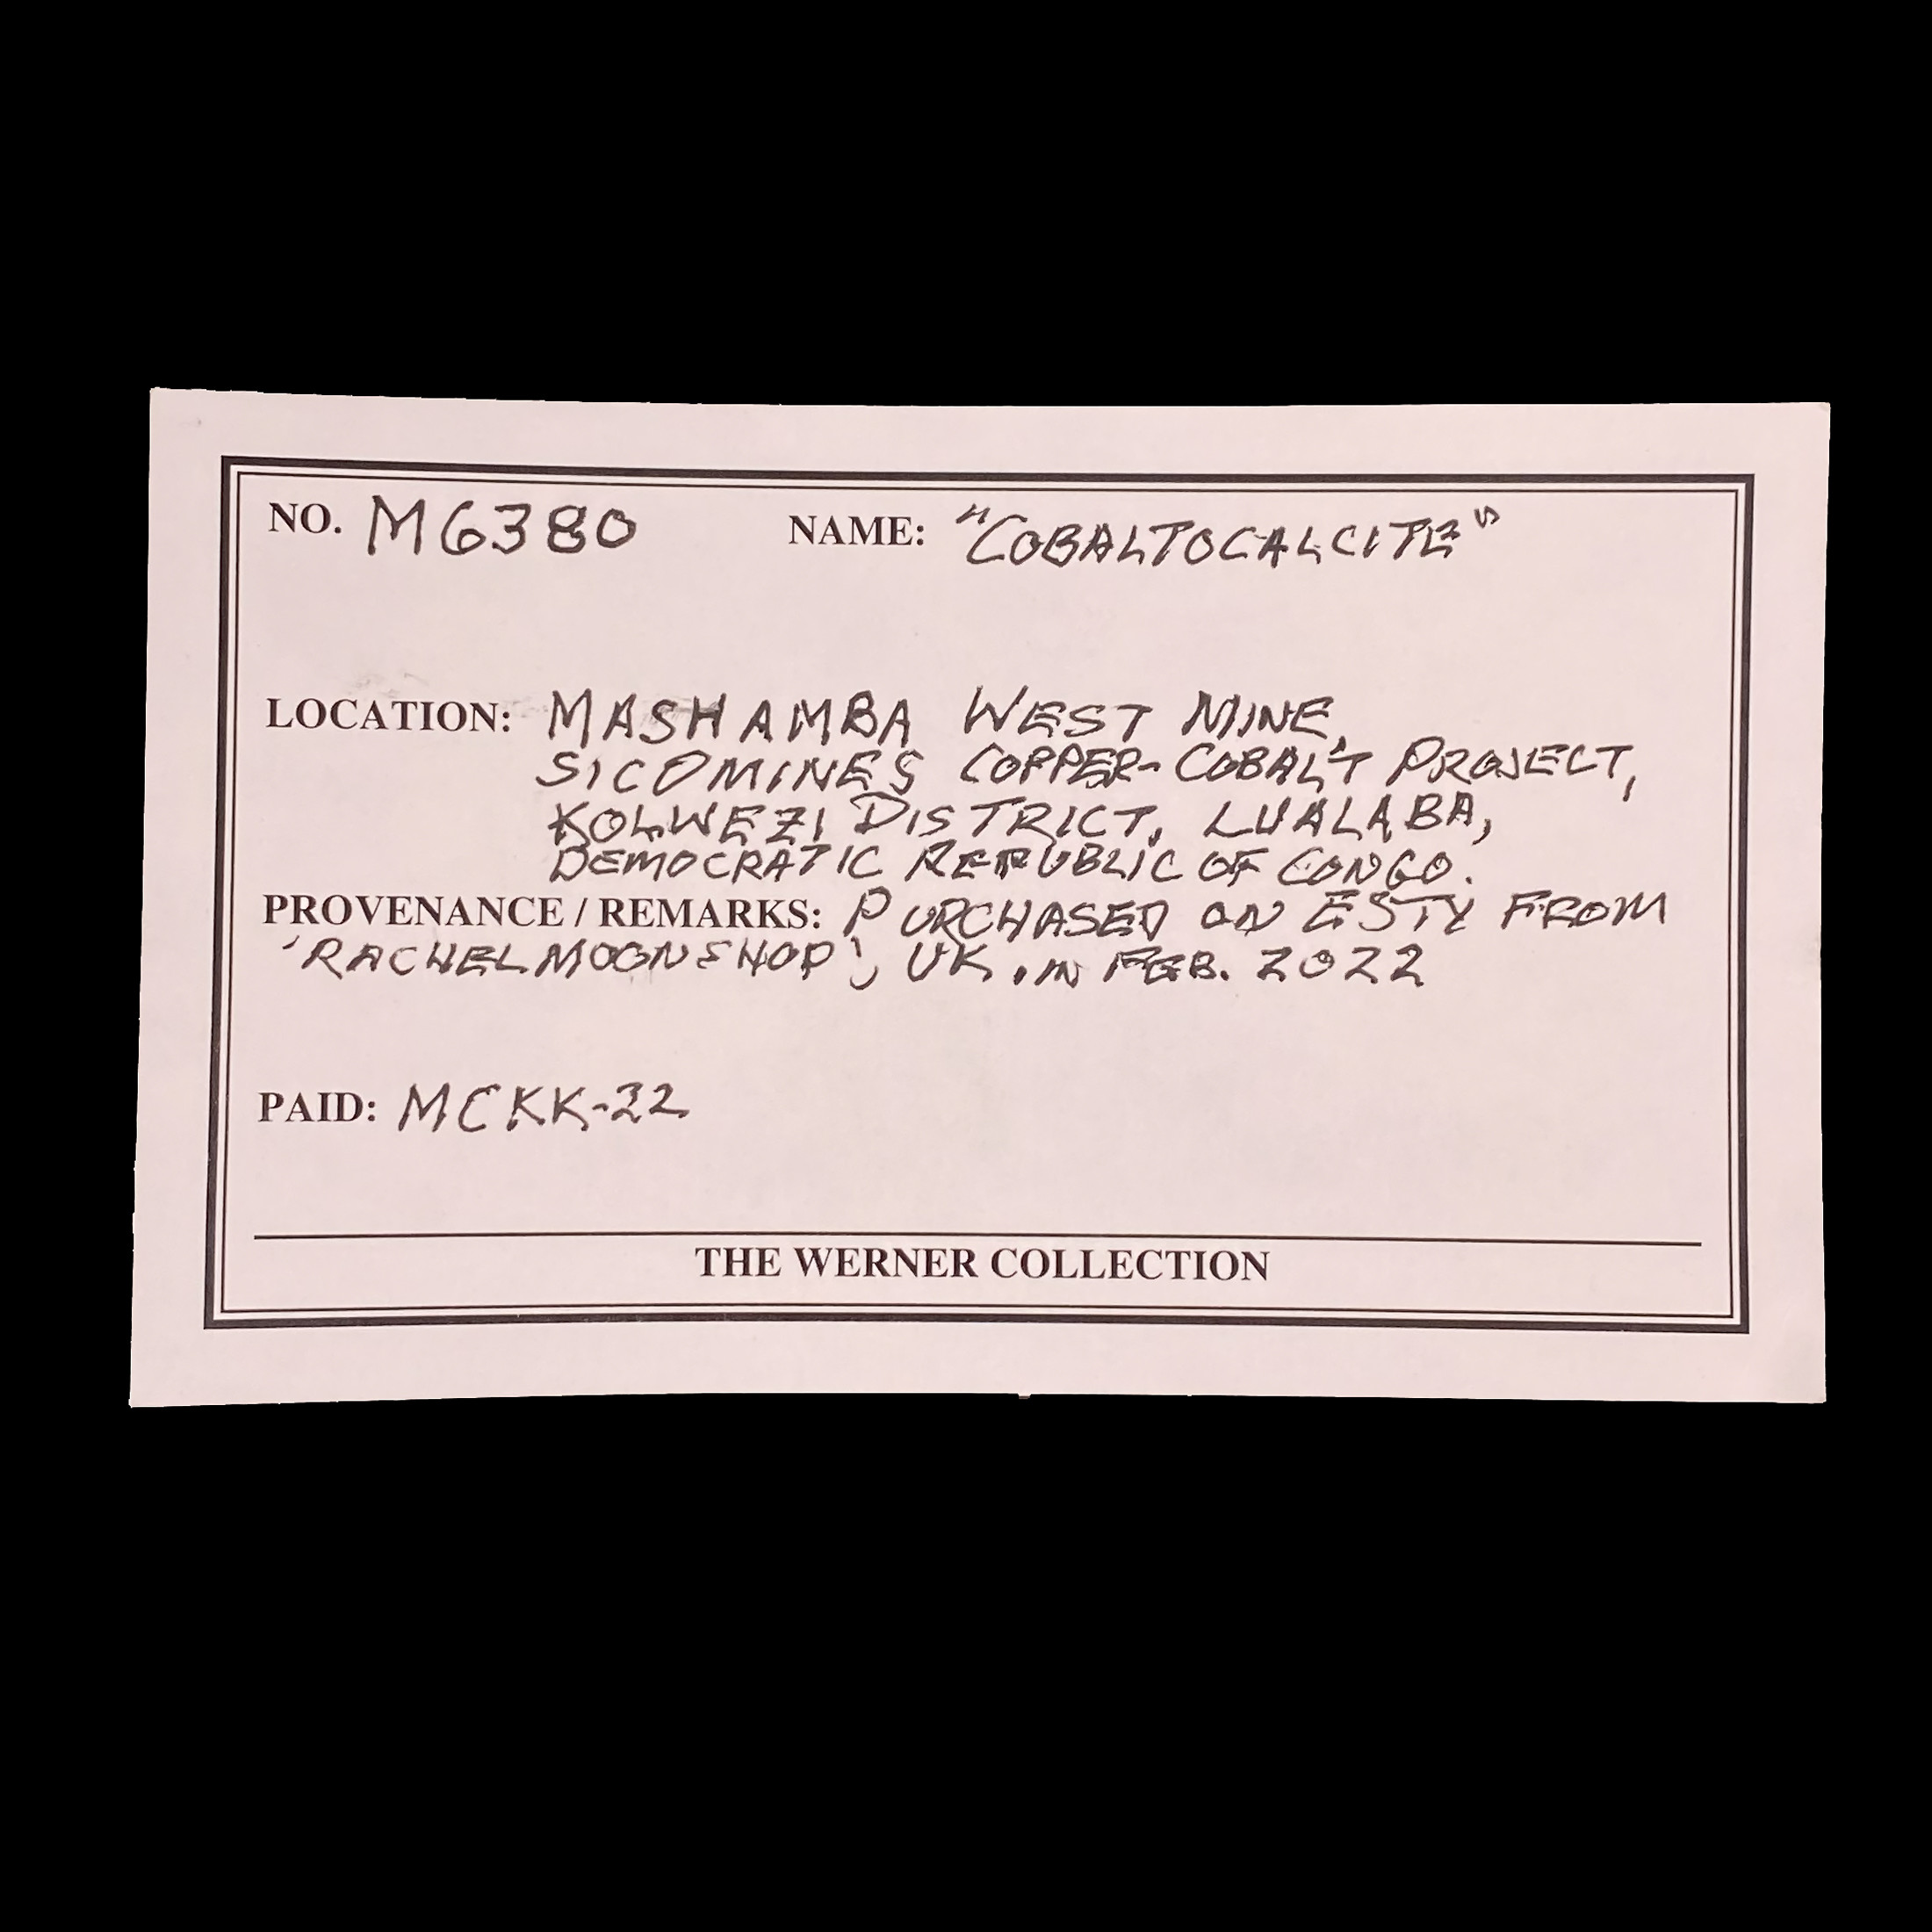 NO. M6380 NAME: "COBALTOCALCITE"
LOCATION: MASHAMBA WEST MINE,
SICOMINES COPPER-COBALT PROJECT,
KOLWEZI DISTRICT, LUALABA,
DEMOCRATIC REPUBLIC OF CONGO.
PROVENANCE / REMARKS: PURCHASED ON ESTY FROM
'RACHELMOONSHOP', UK, IN FEB. 2022
PAID: MCKK-22
THE WERNER COLLECTION